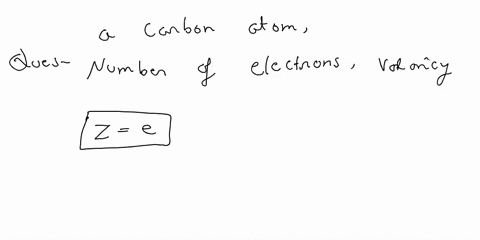 a carbon atom,
Ques- Number of electrons, valancy
Z = e